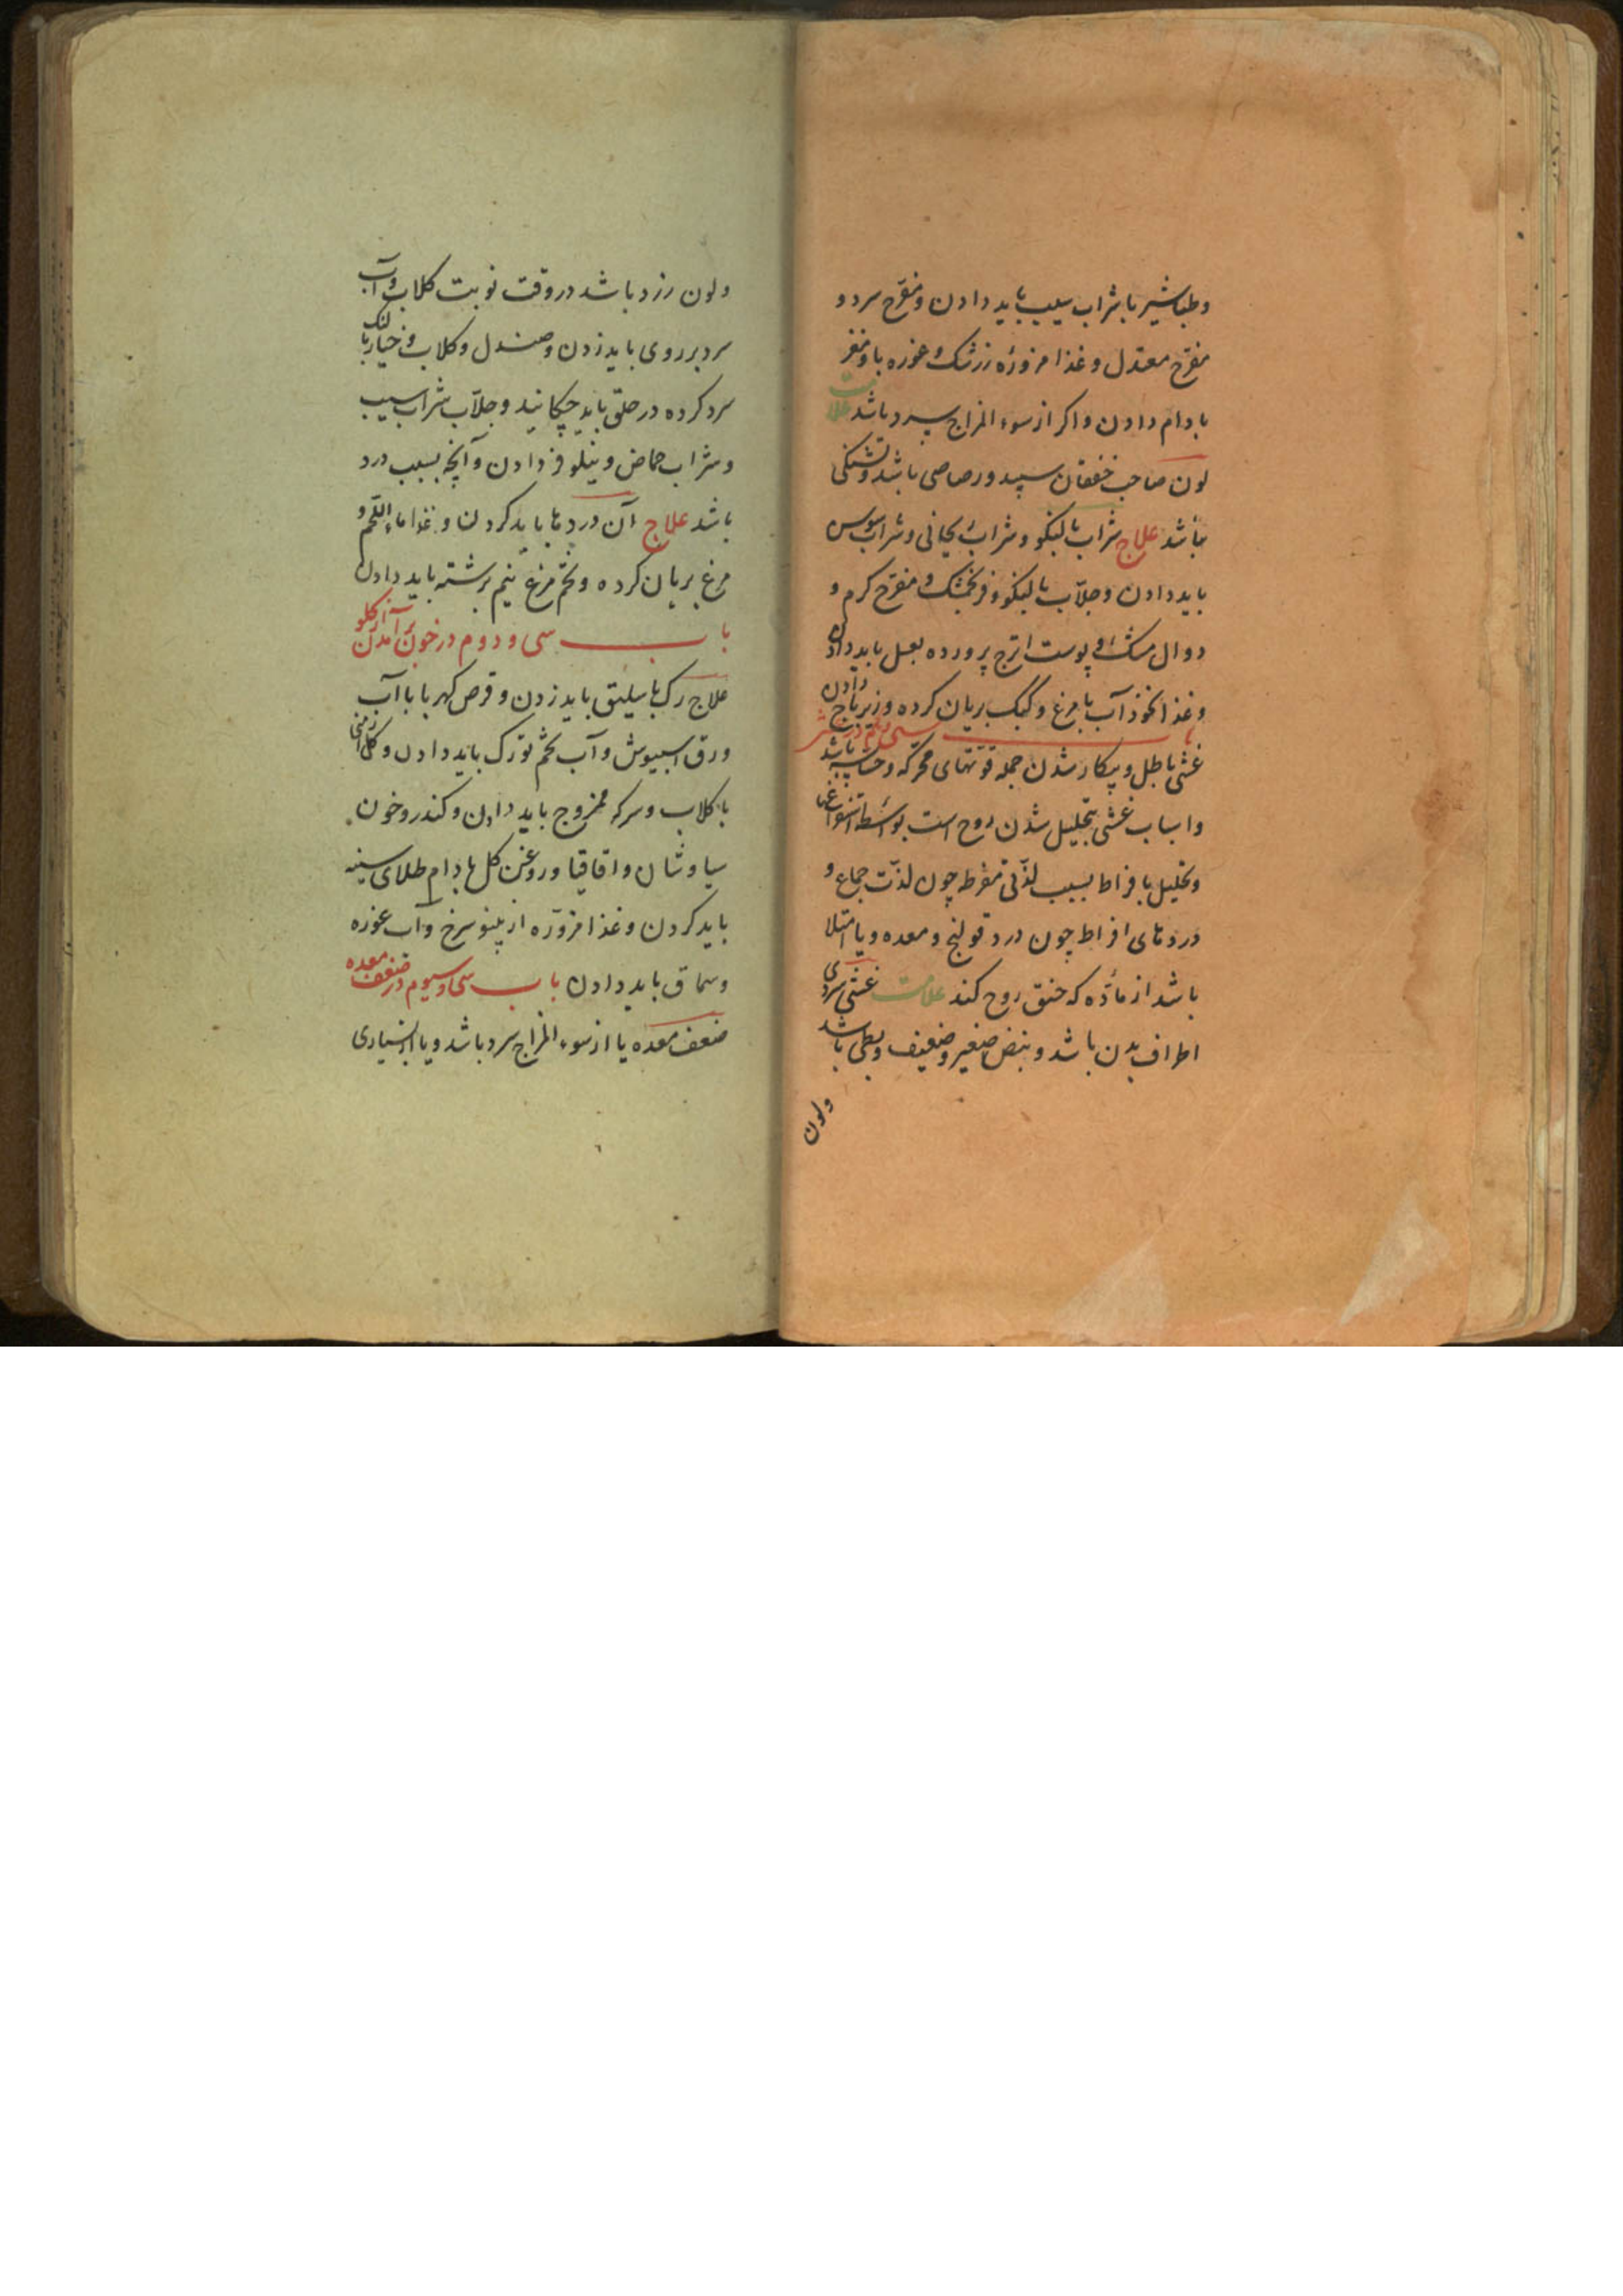 وطباشیر باشراب سیب باید دادن ومفرّح سرد و
مفرّح معتدل وغذا مزورّه زرشک و غوره با و مغز
بادام دادن واکر از سوء المزاج سرد باشد علامت
لون صاحب خفقان سپید ورصاصی باشد وتشنکی
نباشد علاج شراب بالنکو وشراب ریحانی وشراب سوس
باید دادن وجلّاب بالنکو وفرنجمشک و مفرّح کرم و
دوال مشک و پوست اترج پرورده بعسل باید دادن
وغذا نخوذآب با مرغ وکبک بریان کرده وزیرباج دادن
باب سی ویکم در غشی
غشی باطل وبیکار شدن جمله قوّتهای محرکه وحسّاسه باشد
واسباب غشی تحلیل شدن روح است بواسطه استفراغها
وتحلیل بافراط بسبب لذّتی مفرط چون لذّت جماع و
دردهای افراط چون درد قولنج ومعده ویا امتلا
باشد از مادّه که خنق روح کند علامت غشی سردی
اطراف بدن باشد ونبض صغیر وضعیف وبطی باشد
ولون
ولون زرد باشد در وقت نوبت کلاب وآب
سرد بر روی باید زدن وصندل وکلاب و خیار بالنک
سرد کرده در حلق باید چکانید وجلّاب شراب سیب
وشراب حماض ونیلوفر دادن وآنچه بسبب درد
باشد علاج آن دردها باید کردن وغذا ماء اللّحم و
مرغ بریان کرده وتخم مرغ نیم برشته باید دادن
باب سی ودوم در خون برآمدن از کلو
علاج رک باسیلیق باید زدن وقرص کهربا با آب
ورق اسبیوش وآب تخم تورک باید دادن وکل ارمنی
با کلاب وسرکه ممزوج باید دادن وکندر وخون
سیاوشان واقاقیا وروغن کل بادام طلای سینه
باید کردن وغذا مزوّره از پینو سرخ وآب غوره
وسماق باید دادن باب سی وسیوم در ضعف معده
ضعف معده یا از سوء المزاج سرد باشد ویا از بسیاری